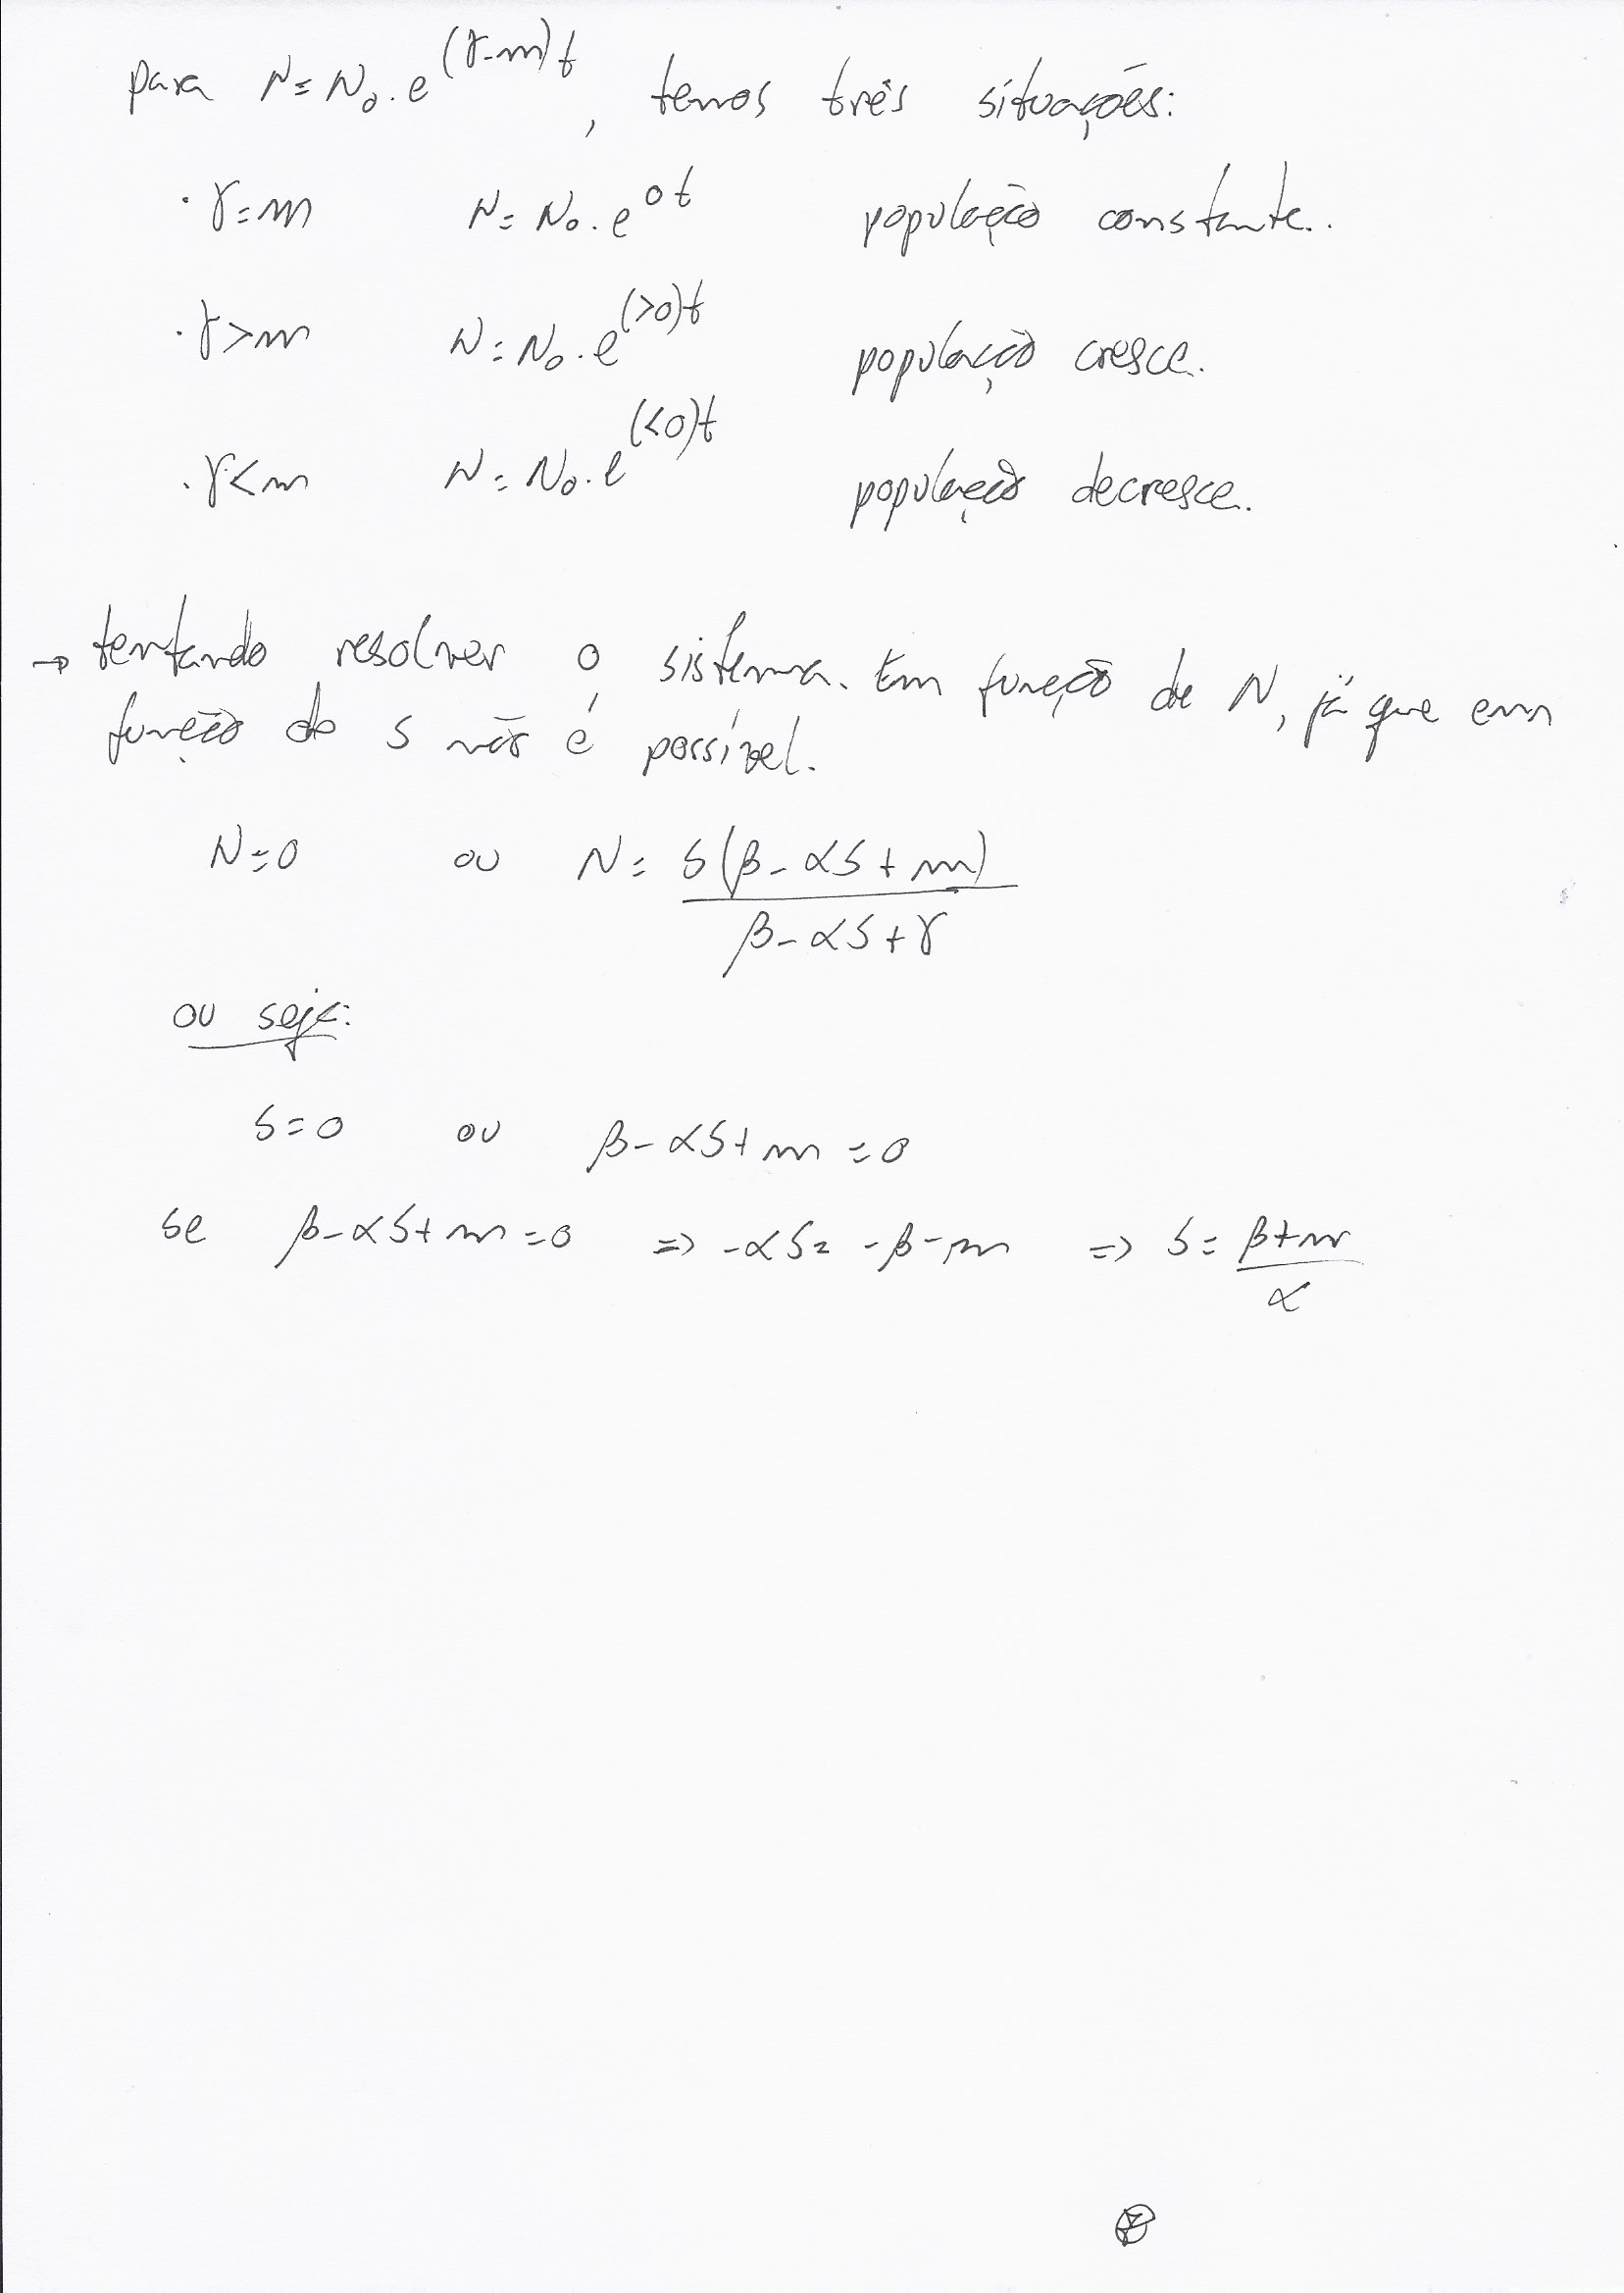 para N = N₀ . e^(γ-m)t , temos três situações:
· γ = m N = N₀ . e^0t população constante..
· γ > m N = N₀ . e^(>0)t população cresce.
· γ < m N = N₀ . e^(<0)t população decresce.
→ tentando resolver o sistema. Em função de N, já que em
função do S não é possível.
N = 0 ou N = S(β - αS + m)
β - αS + γ
ou seja:
S = 0 ou β - αS + m = 0
se β - αS + m = 0 => -αS = -β - m => S = β + m
α